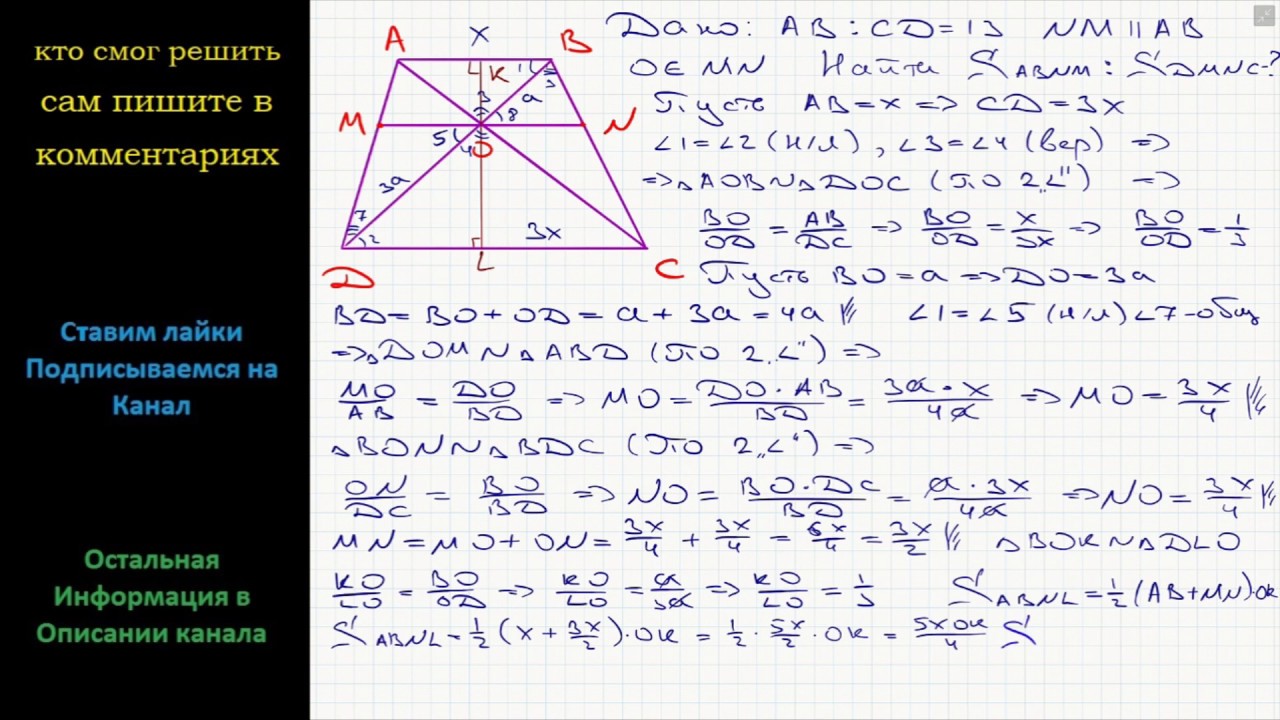 кто смог решить
сам пишите в
комментариях
Ставим лайки
Подписываемся на
Канал
Остальная
Информация в
Описании канала
A X B
K 1 3
M 3 a 8 N
5 4 O
3a
7 2 3x
D L C
Дано: AB : CD = 13 NM || AB
O ∈ MN Найти S ABNM : S DMNC - ?
Пусть AB = x => CD = 3x
∠1 = ∠2 (н/л), ∠3 = ∠4 (вер) =>
=> △AOB ~ △DOC (по 2 "∠") =>
BO/OD = AB/DC => BO/OD = x/3x => BO/OD = 1/3
Пусть BO = a => DO = 3a
BD = BO + OD = a + 3a = 4a ∠1 = ∠5 (н/л) ∠7 - общ
=> △DOM ~ △ABD (по 2 "∠") =>
MO/AB = DO/BD => MO = DO · AB/BD = 3a · x/4a => MO = 3x/4
△BON ~ △BDC (по 2 "∠") =>
ON/DC = BO/BD => NO = BO · DC/BD = a · 3x/4a => NO = 3x/4
MN = MO + ON = 3x/4 + 3x/4 = 6x/4 = 3x/2 △BOK ~ △DLO
KO/LO = BO/OD => KO/LO = a/3a => KO/LO = 1/3 S ABNL = 1/2 (AB + MN) · OK
S ABNL = 1/2 (x + 3x/2) · OK = 1/2 · 5x/2 · OK = 5xOK/4 S